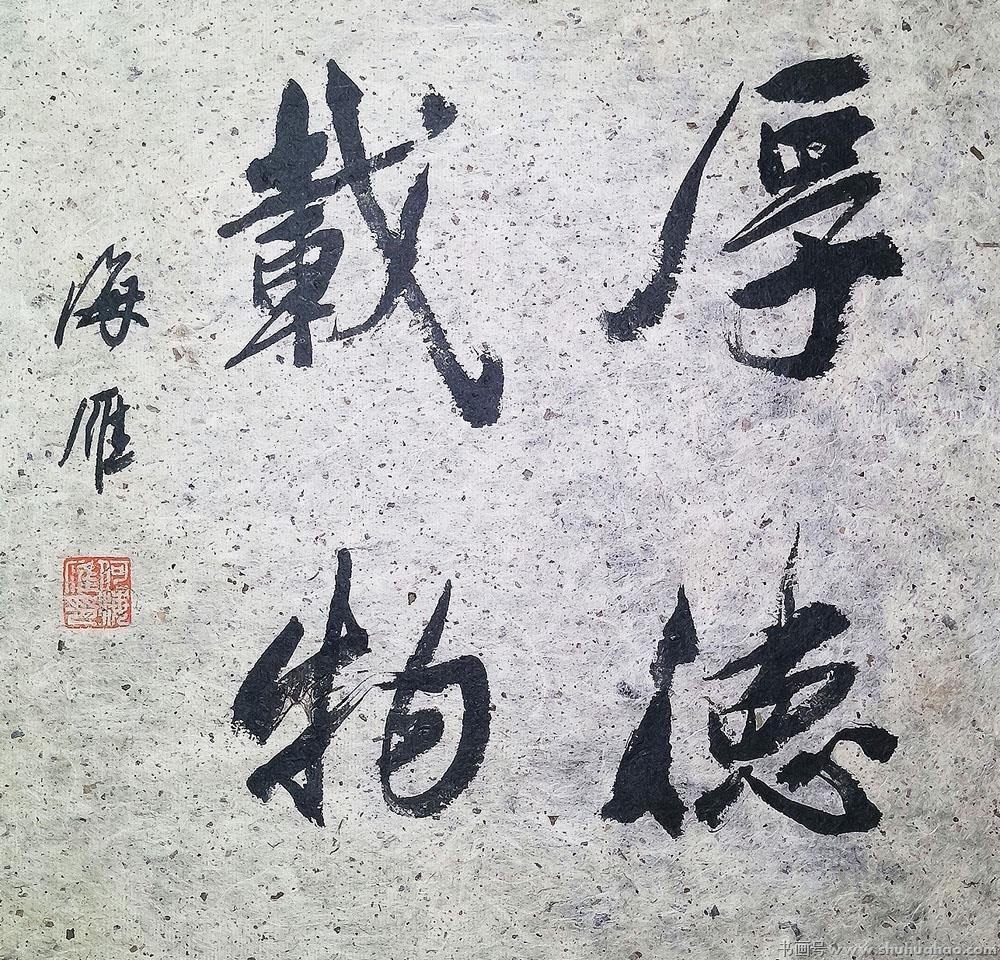 厚德
載物
海雁
书画号www.shuhuahao.com